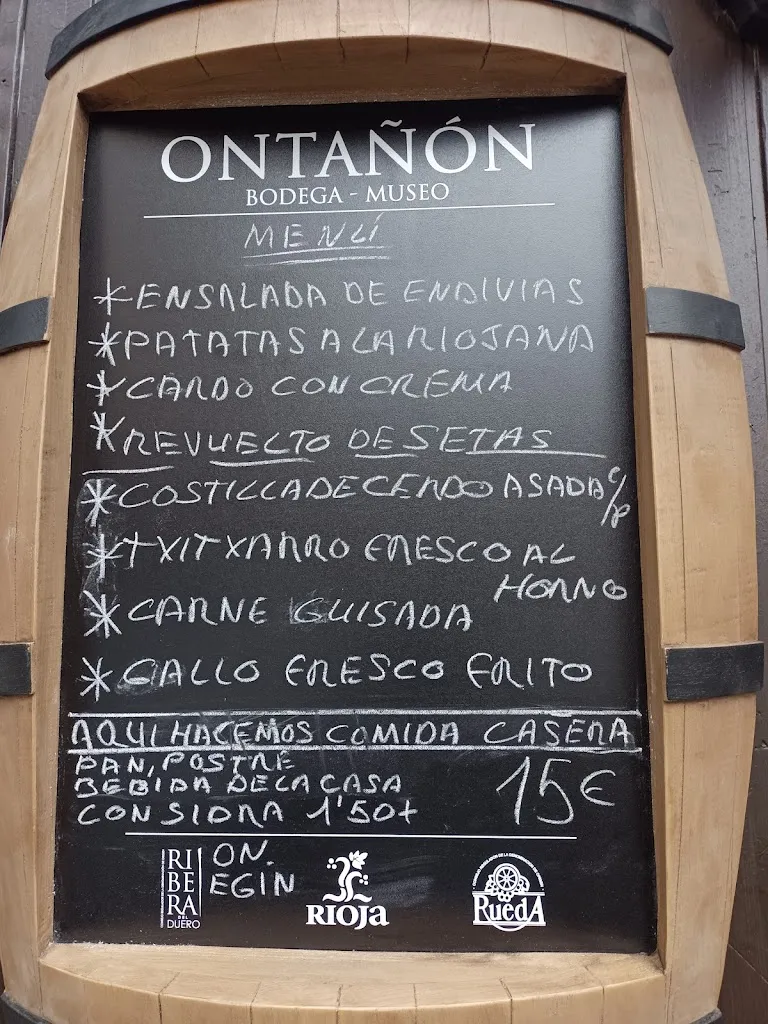 ONTAÑÓN
BODEGA - MUSEO
MENÚ
*ENSALADA DE ENDIVIAS
*PATATAS A LA RIOJANA
*CARDO CON CREMA
*REVUELTO DE SETAS
*COSTILLA DE CERDO ASADA C/P
*TXITXARRO FRESCO AL
HORNO
*CARNE GUISADA
*GALLO FRESCO FRITO
AQUI HACEMOS COMIDA CASERA
PAN, POSTRE
BEBIDA DE LA CASA
CON SIDRA 1'50+
15€
RIBERA
DEL
DUERO
ON.
EGIN
RIOJA
RUEDA